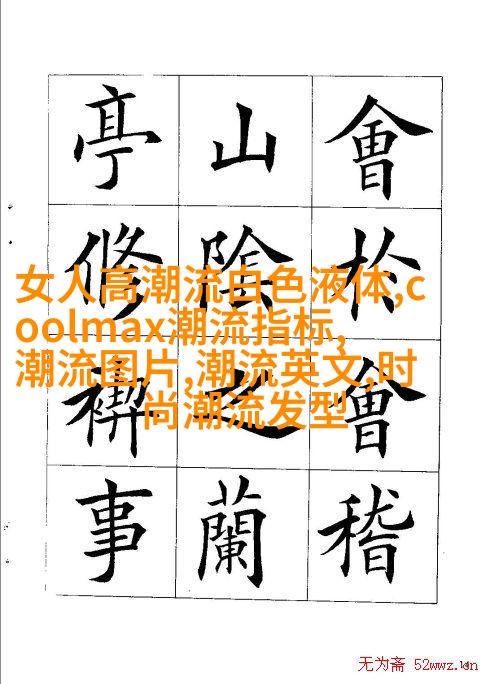 會於會稽
山陰之蘭
亭脩禊事
女人高潮流白色液体,c
oolmax潮流指标,
潮流图片,潮流英文,时
尚潮流发型
无为斋 52wwz.cn